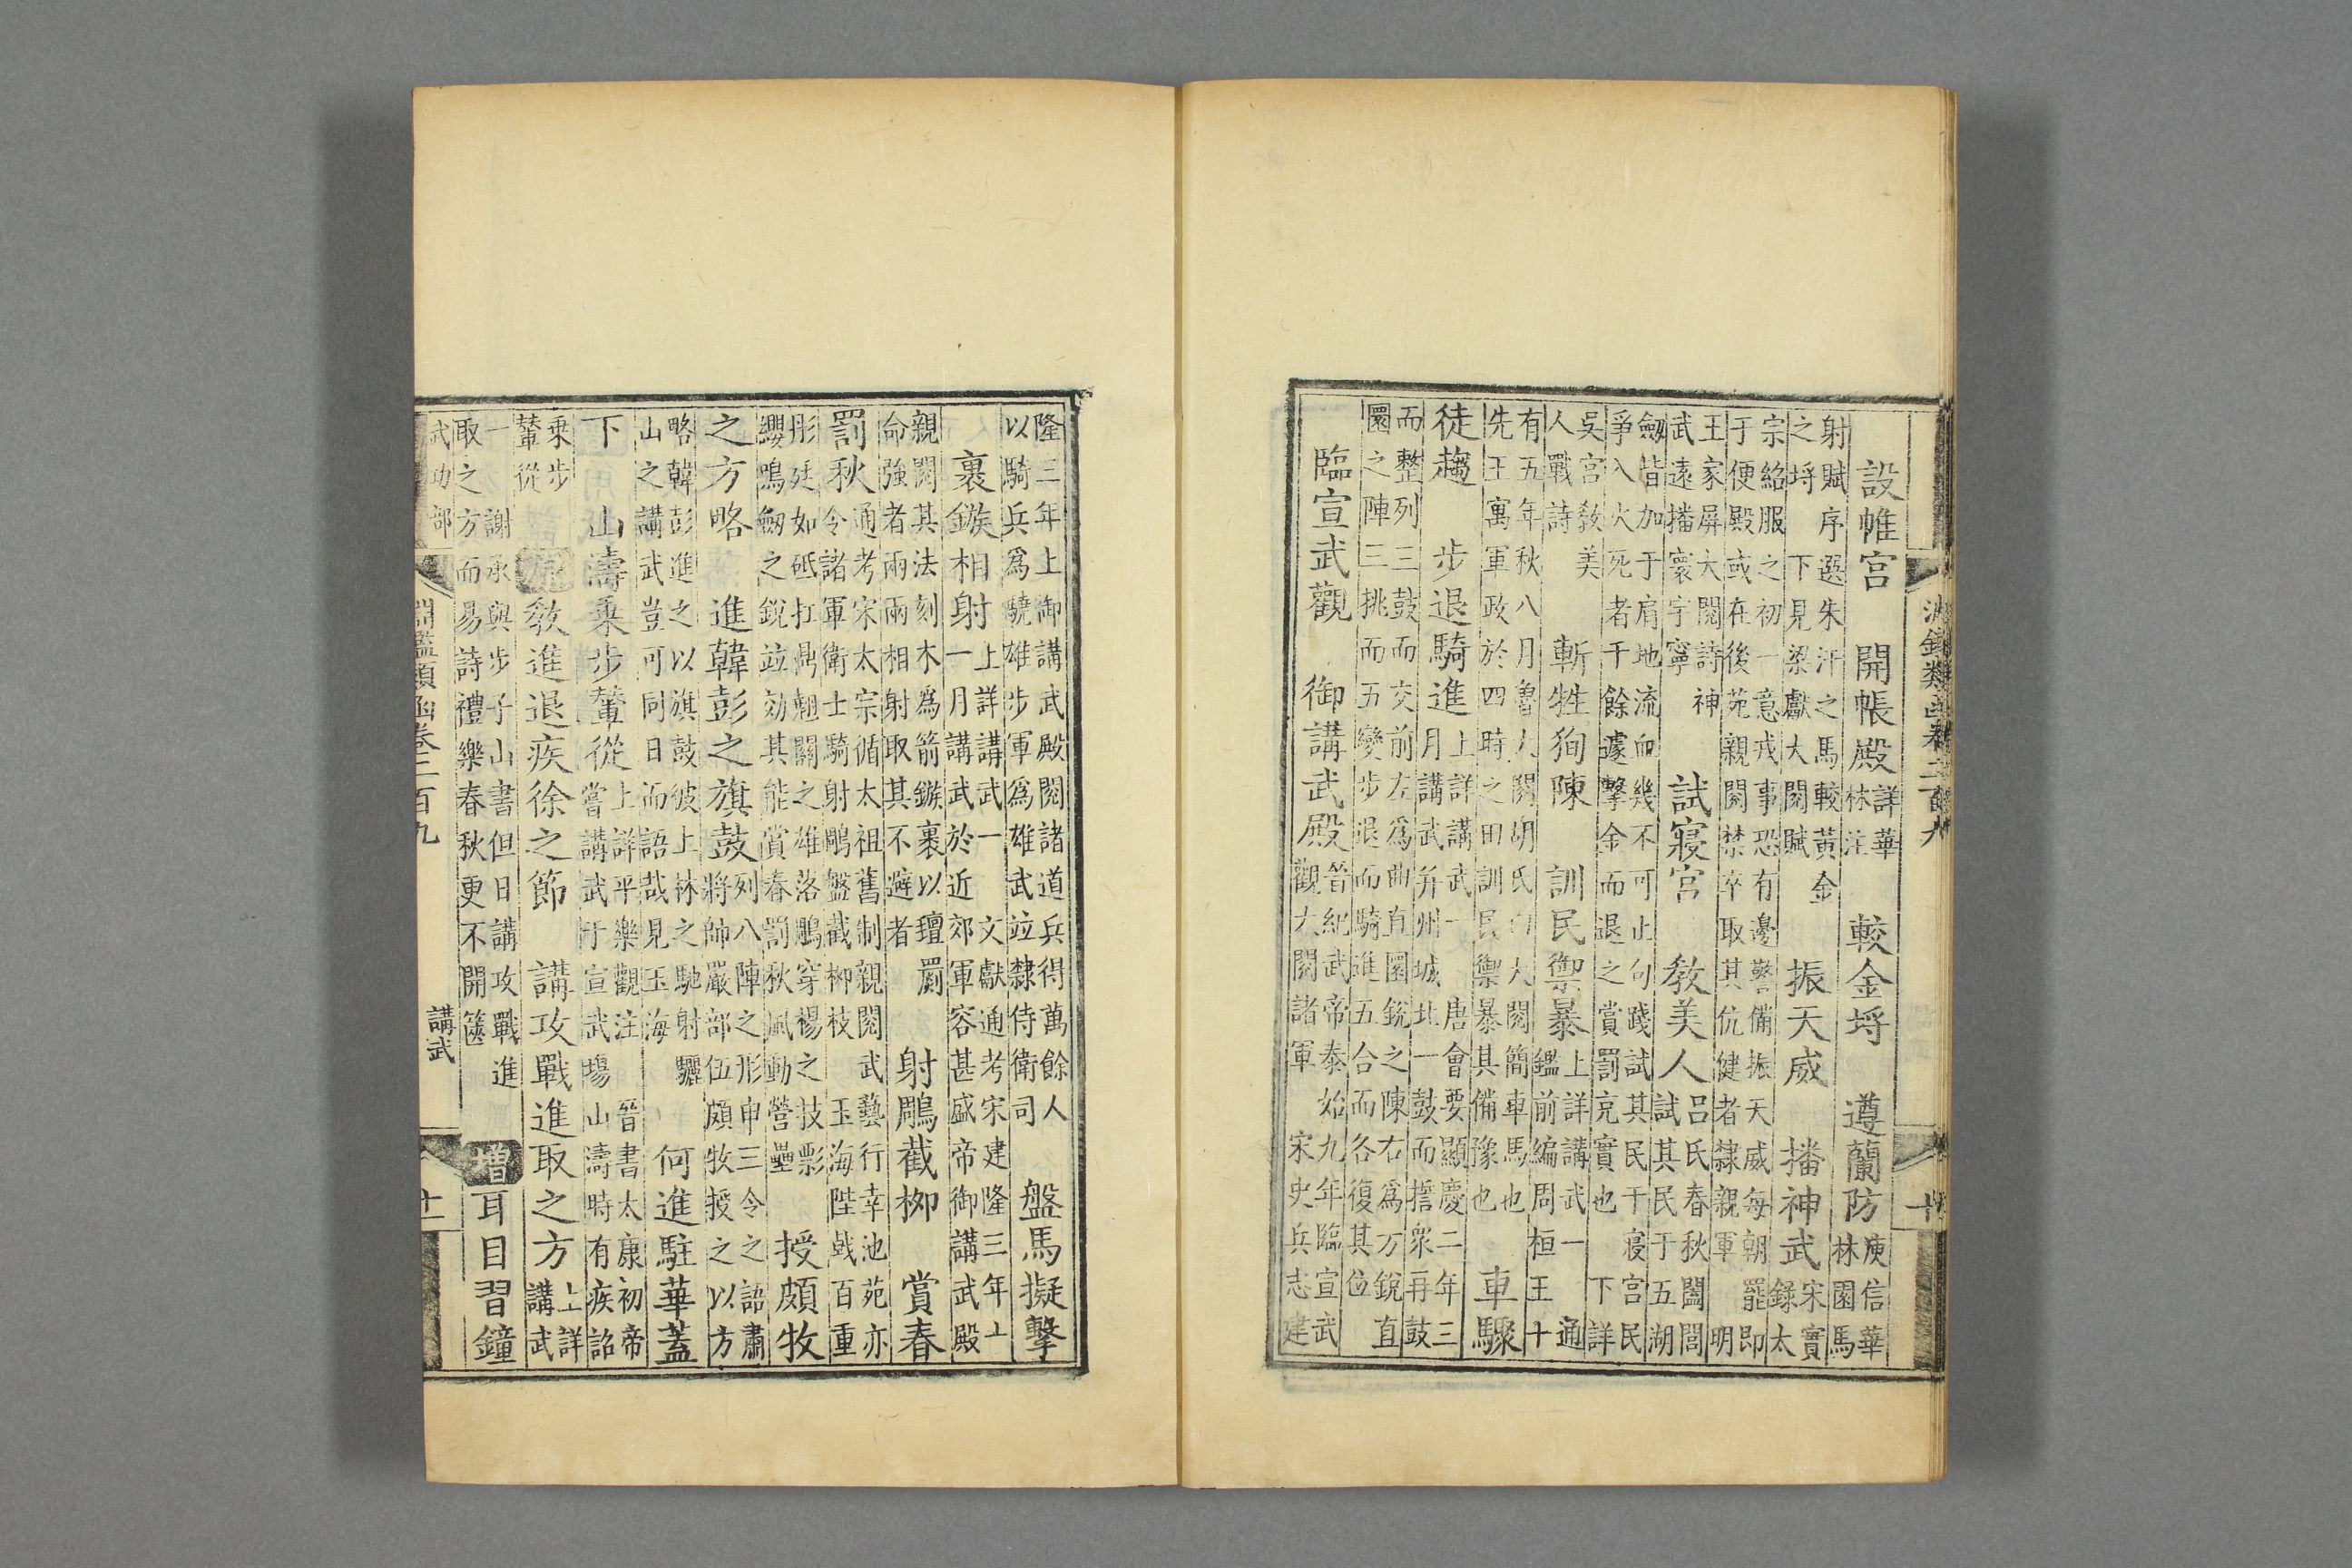 淵鑑類函卷二百九
十
設帷宮　開帳殿
詳華
林注
較金埒　遵蘭防
庾信華
林園馬
射賦序選朱汗之馬較黃金
之埒　下見梁獻大閱賦
振天威　播神武
宋實
錄太
宗紹服之初一意戎事恐有邊警備振天威每朝罷即
于便殿或在後苑親閱禁卒取其伉健者隸親軍　明
王家屏大閱詩神
武遠播寰宇寧
試寢宮　教美人
呂氏春秋闔閭
試其民于五湖
劒皆加于肩地流血幾不可止句踐試其民于寢宮民
爭入火死者千餘遽擊金而退之賞罰克實也　下詳
吳宮教美
人戰詩
斬牲狥陳　訓民禦暴
上詳講武一　通
鑑前編周桓王十
有五年秋八月魯人閱胡氏曰大閱簡車馬也
先王寓軍政於四時之田訓民禦暴其備豫也
車驟
徒趨　步退騎進
上詳講武一　唐會要顯慶二年三
月講武并州城北一鼓而擔衆再鼓
而整列三鼓而交前左爲曲直圜銳之陳右爲方銳直
圜之陣三挑而五變步退而騎進五合而各復其位
臨宣武觀　御講武殿
晉紀武帝泰始九年臨宣武
觀大閱諸軍　宋史兵志建
隆三年上御講武殿閱諸道兵得萬餘人
以騎兵爲驍雄步軍爲雄武竝隸侍衛司
盤馬擬擊
裹鏃相射
上詳講武一　文獻通考宋建隆三年十
一月講武於近郊軍容甚盛帝御講武殿
親閱其法刻木爲箭鏃裹以氊罽
命強者兩兩相射取其不避者
射鵰截柳　賞春
罰秋
通考宋太宗循太祖舊制親閱武藝行幸池苑亦
令諸軍衛士騎射鵰盤截柳枝　玉海陛戟百重
彤廷如砥扛鼎翹關之雄洛鵰穿楊之技
纓鳴劒之銳竝効其能賞春罰秋風動營壘
授頗牧
之方略　進韓彭之旗鼓
列八陣之形申三令之語肅
將帥嚴部伍頗牧授之以方
略韓彭進之以旗鼓彼上林之馳射驪
山之講武豈可同日而語哉見玉海
何進駐華蓋
下　山濤乘步輦從
上詳平樂觀注　晉書太康初帝
嘗講武于宣武場山濤時有疾詔
乘步
輦從
原教進退疾徐之節　講攻戰進取之方
上詳
講武
一　謝承與步子山書但曰講攻戰進
取之方而易詩禮樂春秋更不開篋
增耳目習鐘
武功部
淵鑑類函卷二百九
講武
十一